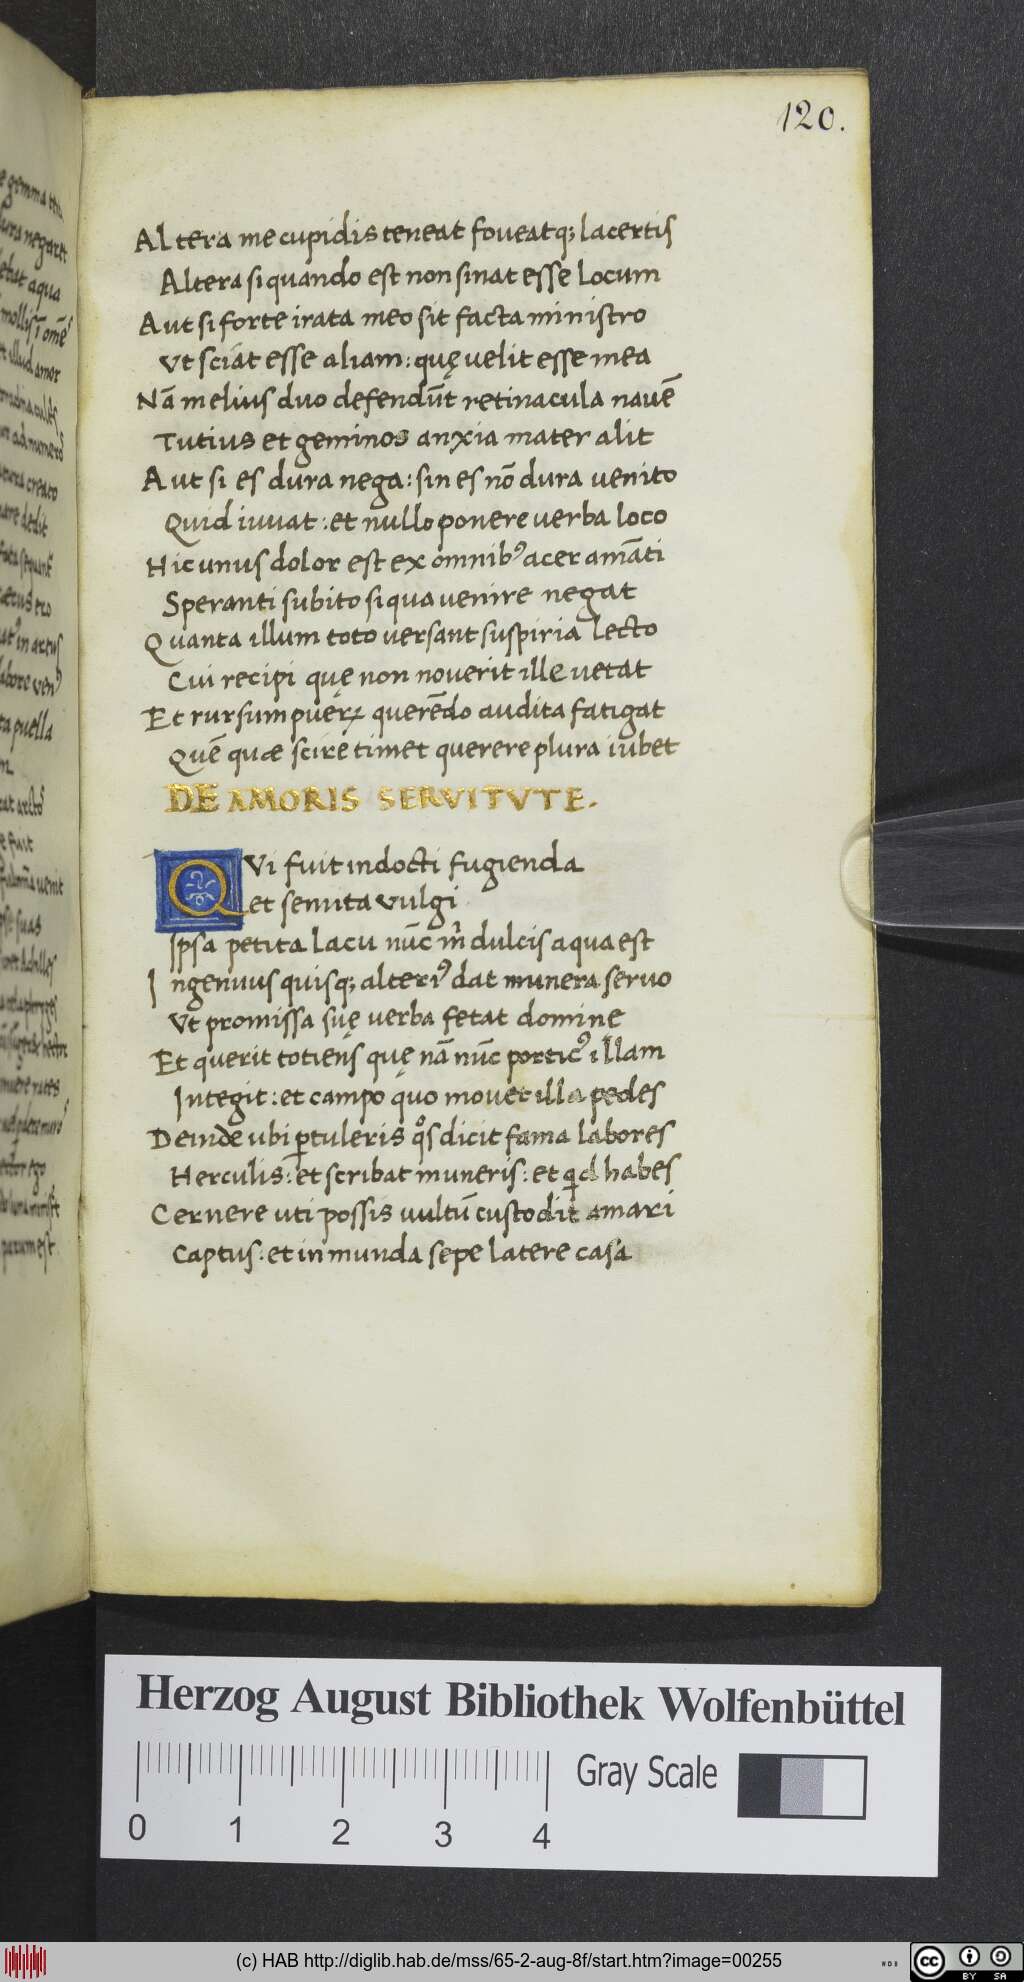 120.
Altera me cupidis teneat foveatq; lacertis
Altera si quando est non sinat esse locum
Aut si forte irata meo sit facta ministro
Ut sciat esse aliam: quę velit esse mea
Nā melius duo defendūt retinacula navē
Tutius et geminos anxia mater alit
Aut si es dura nega: sin es nō dura venito
Quid iuvat: et nullo ponere verba loco
Hic unus dolor est ex omnibꝰ acer amāti
Speranti subito si qua venire negat
Quanta illum toto versant suspiria lecto
Cui recipi quę non noverit ille vetat
Et rursum puerꝝ querēdo audita fatigat
Quē quæ scire timet querere plura iubet
DE AMORIS SERVITVTE.
QVi fuit indocti fugienda
et semita vulgi
Ipsa petita lacu nūc m̄ dulcis aqua est
Ingenuus quisq; alteriꝰ dat munera servo
Ut promissa suę verba fetat domine
Et querit totiens quę nā nūc porticꝰ illam
Integit: et campo quo movet illa pedes
Deinde ubi ꝑtuleris qͦs dicit fama labores
Herculis: et scribat muneris: et qid habes
Cernere uti possis vultū custodit amari
Captus: et inmunda sepe latere casa
Herzog August Bibliothek Wolfenbüttel
0 1 2 3 4
Gray Scale
(c) HAB http://diglib.hab.de/mss/65-2-aug-8f/start.htm?image=00255
cc BY SA